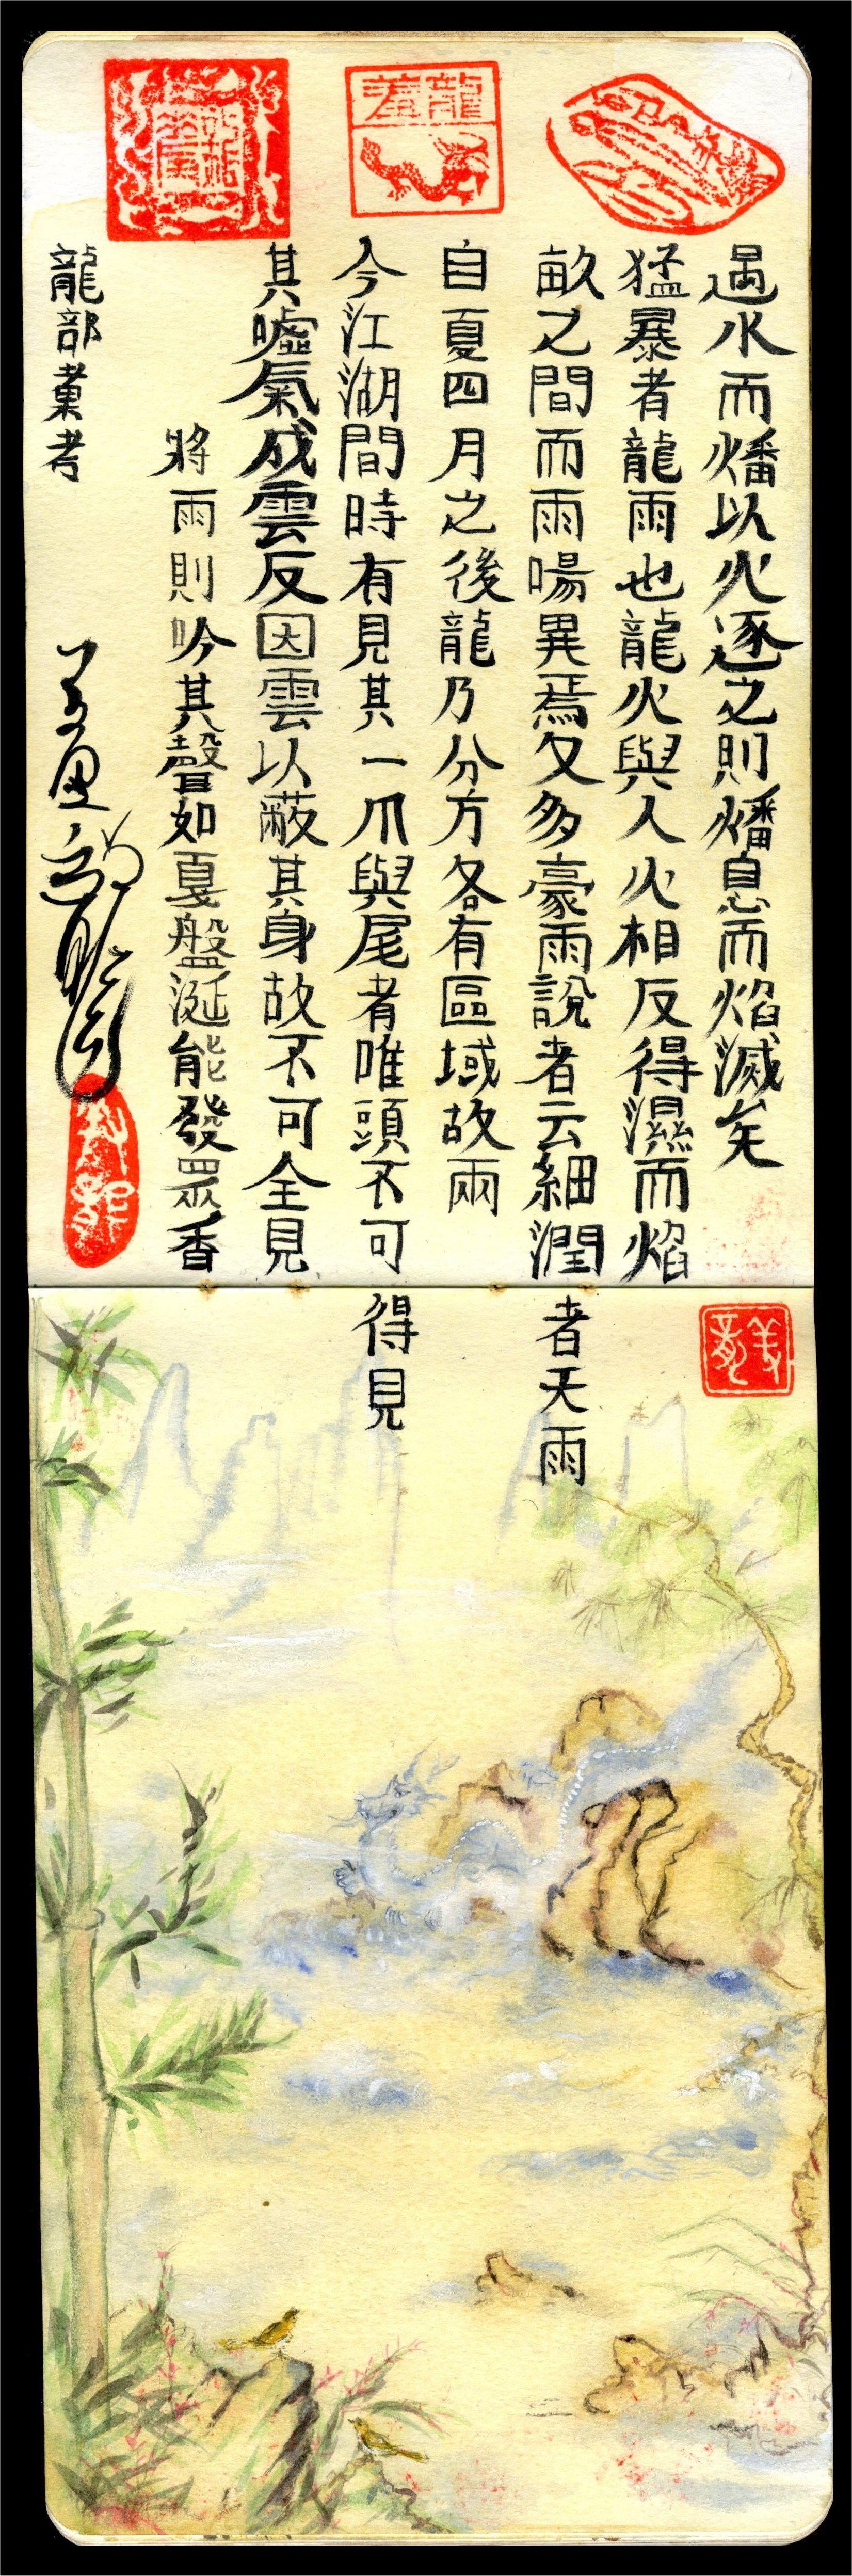 龍羞
遇水而燔以火逐之則燔息而焰滅矣
猛暴者龍雨也龍火與人火相反得濕而焰
畝之間而雨暘異焉又多豪雨說者云細潤者天雨
自夏四月之後龍乃分方各有區域故兩
今江湖間時有見其一爪與尾者唯頭不可得見
其噓氣成雲反因雲以蔽其身故不可全見
將雨則吟其聲如戛盤涎能發眾香
龍部彙考